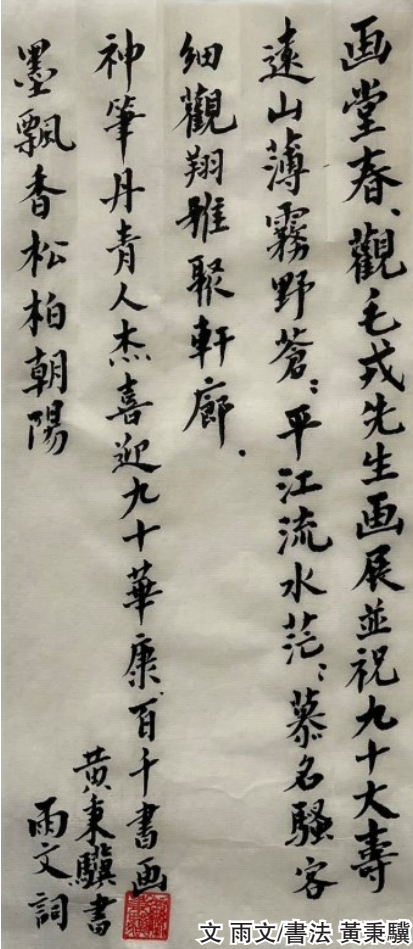 画堂春、觀毛戎先生画展並祝九十大壽
遠山薄霧野蒼々平江流水茫々慕名騷客
細觀翔雅聚軒廊.
神筆丹青人杰喜迎九十華康百千書画
墨飄香松柏朝陽
黄秉驥書
雨文詞
文 雨文/書法 黃秉驥